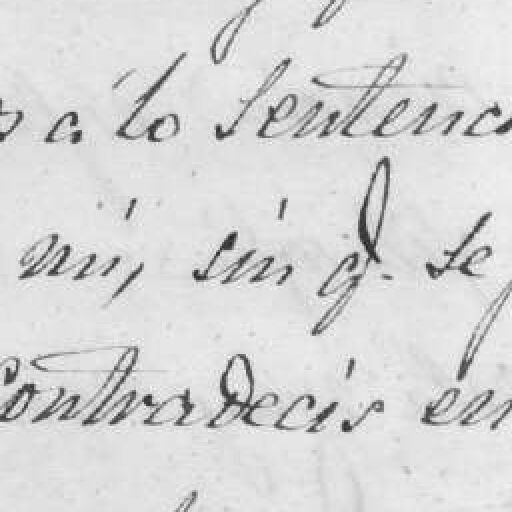 a lo Sentenc
ni, sin q. se
Contradecis en